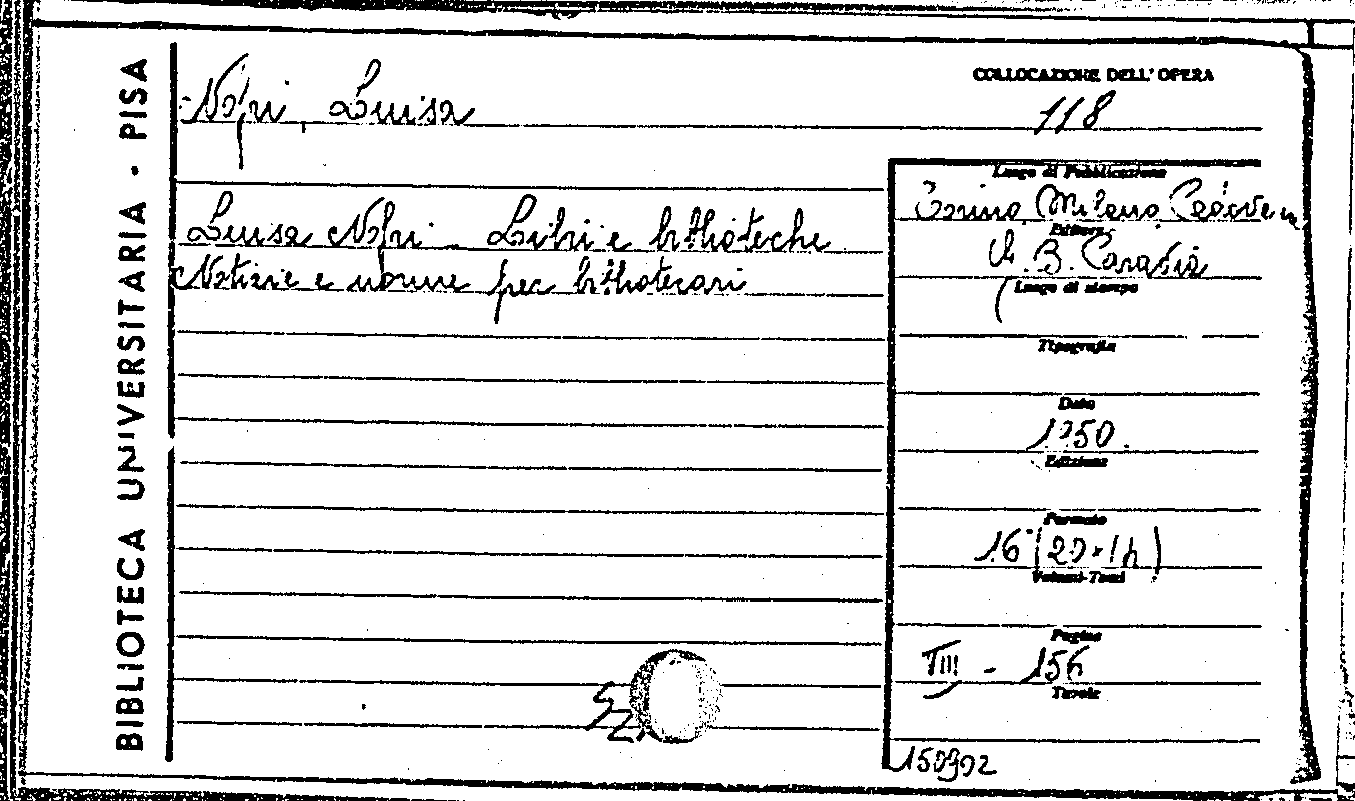 BIBLIOTECA UNIVERSITARIA - PISA
Nofri, Luisa
COLLOCAZIONE DELL'OPERA
118
Luisa Nofri - Libri e biblioteche
Notizie e norme per bibliotecari
Luogo di Pubblicazione
Torino Milano Padova
Editore
G. B. Paravia
Luogo di stampa
Tipografia
Data
1950.
Edizione
Formato
16° (20×14)
Volumi-Tomi
Pagine
VIII - 156
Tavole
150902